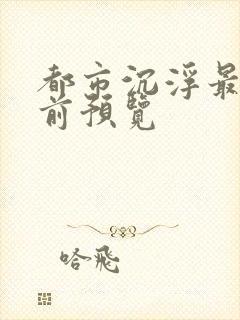 都市沉浮最
前預覽
哈飛